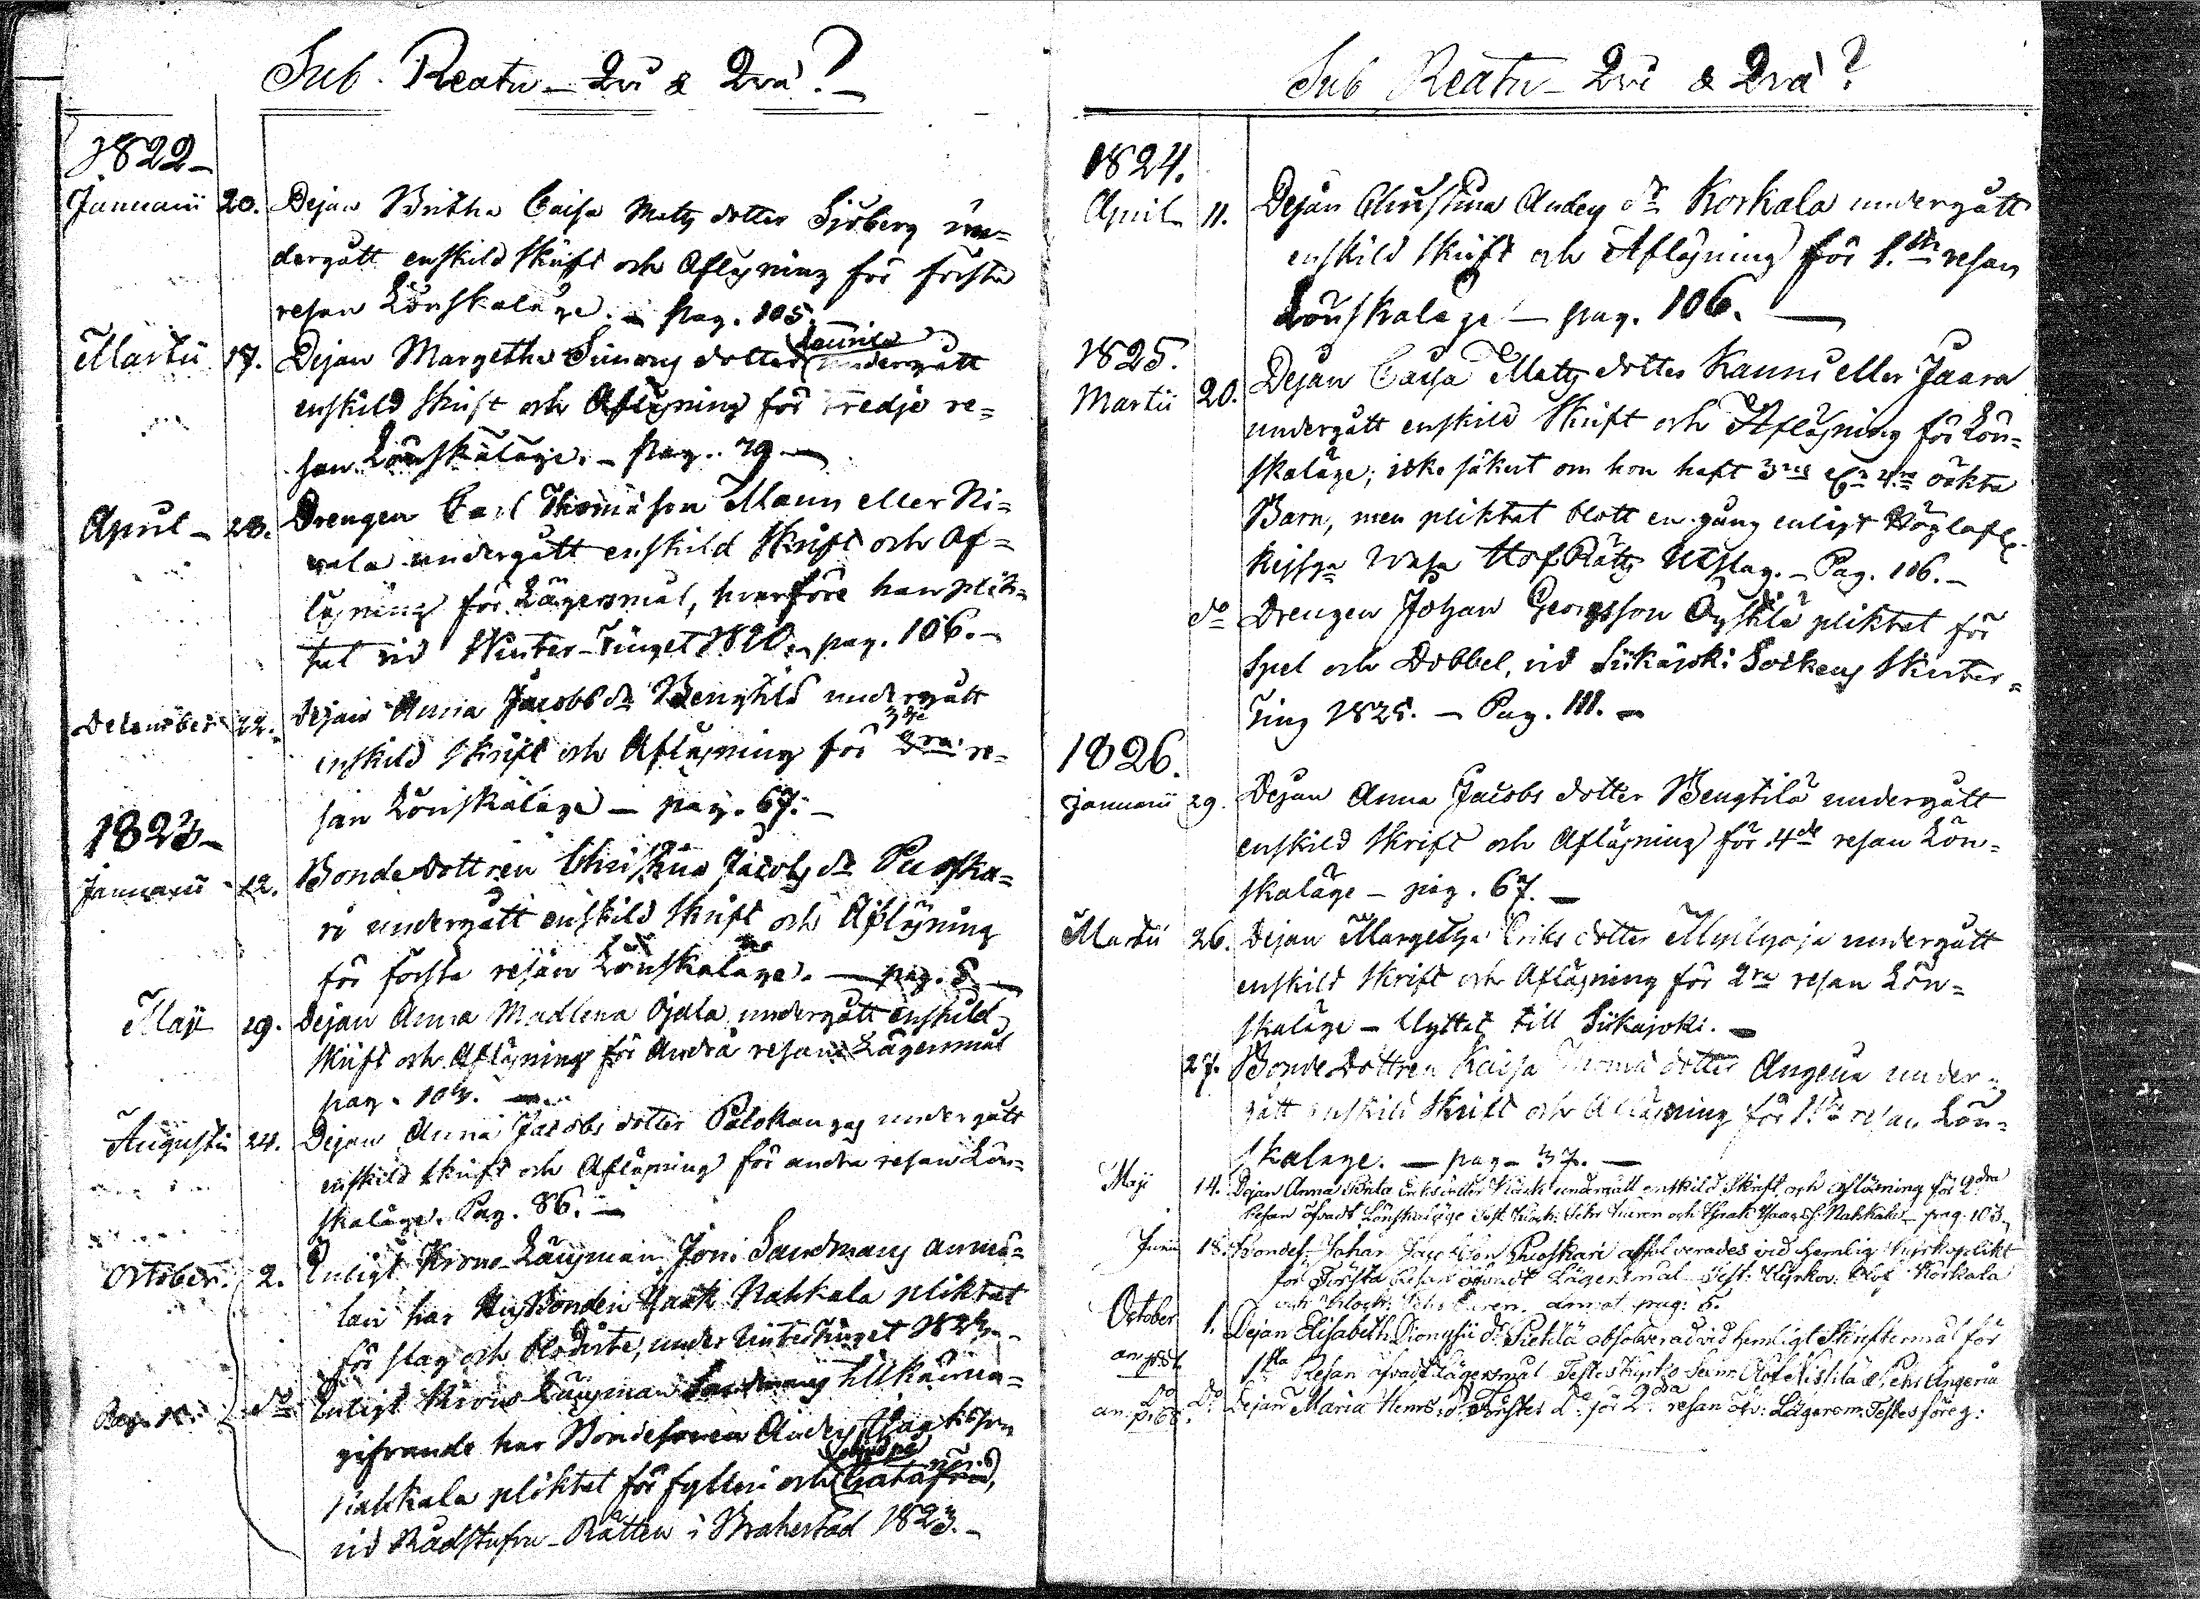 Sub Reatu – Qvi & Qva?
1822–
Januarii 20. Dejan Britha Caisa Mats dotter Sjöberg un=
dergått enskild skrift och Aflösning för första
resan Lönskaläge. – pag. 105.
Martii 17. Dejan Margetha Simons dotter Launila undergått
enskild skrift och Aflösning för tredje re=
san Lönskaläge. – pag. 79 –
April – 28. Drengen Carl Thomasson Mann eller Ni=
vala undergått enskild skrift och Af=
lösning för Lägersmål, hvarföre han plik=
tat vid Winter-Tinget 1820. pag. 106. –
December 22. Dejan Anna Jacobs dr Bengtilä undergått
enskild skrift och Aflösning för 3dje 2dra re=
san Lönskaläge – pag. 67. –
1823–
Januarii – 12. Bonde Dottren Christina Jacobs dr Puoska=
ri undergått enskild skrift och Aflösning
för första resan Lönskaläge. – pag. 5. –
Maji 29. Dejan Anna Madlena Ojala undergått enskild
skrift och Aflösning för Andra resan Lägersmål
pag. 103. –
Augusti 24. Dejan Anna Jacobs dotter Palokangas undergått
enskild skrift och Aflösning för andra resan Lön=
skaläge. Pag. 86. –
October. 2. Enligt Krono-Länsman Joni Sandmans anmä=
lan har Bonden Isaak Nahkala pliktat
för slag och blodvite, under Vintertinget 1823 –
do Enligt Krono Länsman Sandmans tillkänna=
gifvande har Bondesonen Anders Isaksson
Nahkala pliktat för fylleri och
vid Rådstufvu-Rätten i Brahestad 1823. –
Sub Reatu – Qvi & Qva?
1824.
April 11. Dejan Christina Anders dr Korkala undergått
enskild skrift och Aflösning för 1.sta resan
Lönskaläge – pag. 106. –
1825.
Martii 20. Dejan Caisa Mats dotter Kannu eller Jaara
undergått enskild skrift och Aflösning för Lön=
skaläge; icke säkert om hon haft 3ne eller 4ra oäkta
Barn, men pliktat blott en gång enligt Höglofl.
Kejserl. Wasa HofRätts Utslag. – Pag. 106. –
do Drengen Johan Georgsson Öystilä pliktat för
spel och Dobbel, vid Siikajoki Sockens Winter=
Ting 1825. – Pag. 111. –
1826.
Januarii 29. Dejan Anna Jacobs dotter Bengtilä undergått
enskild skrift och Aflösning för 4de resan Lön=
skaläge – pag. 67. –
Martii 26. Dejan Margetha Eriks dotter Myllyoja undergått
enskild skrift och Aflösning för 2ra resan Lön=
skaläge – flyttat till Siikajoki. –
27. Bonde Dottren Kaisa Thoma dotter Angeria under=
gått enskild skrift och Aflösning för 1sta resan Lön=
skaläge. – pag – 37. –
Maji 14. Dejan Anna Brita Eriks dotter undergått enskild skrift och aflösning för 2dra
Resan öfvadt Lönskaläge och Isaak Nahkala – pag. 103
Junii 18. Bondes. Johan Jacobsson Puoskari absolverades vid hemlig kyrkoplikt
för Första Resan öfvadt Lägersmål Test: Kyrkov: Olof Korkala
annot. pag: 5.
October 1. Dejan Elisabeth Dionysii dr Pietilä absolverad vid hemligt Skriftermål för
1sta Resan öfvadt Lägersmål Testes Kyrko Olof Kistilä & Pehr Angeria
do do Dejan Maria Henrs. dr do för 2dra resan öfv: Lägersm: Testes föreg: